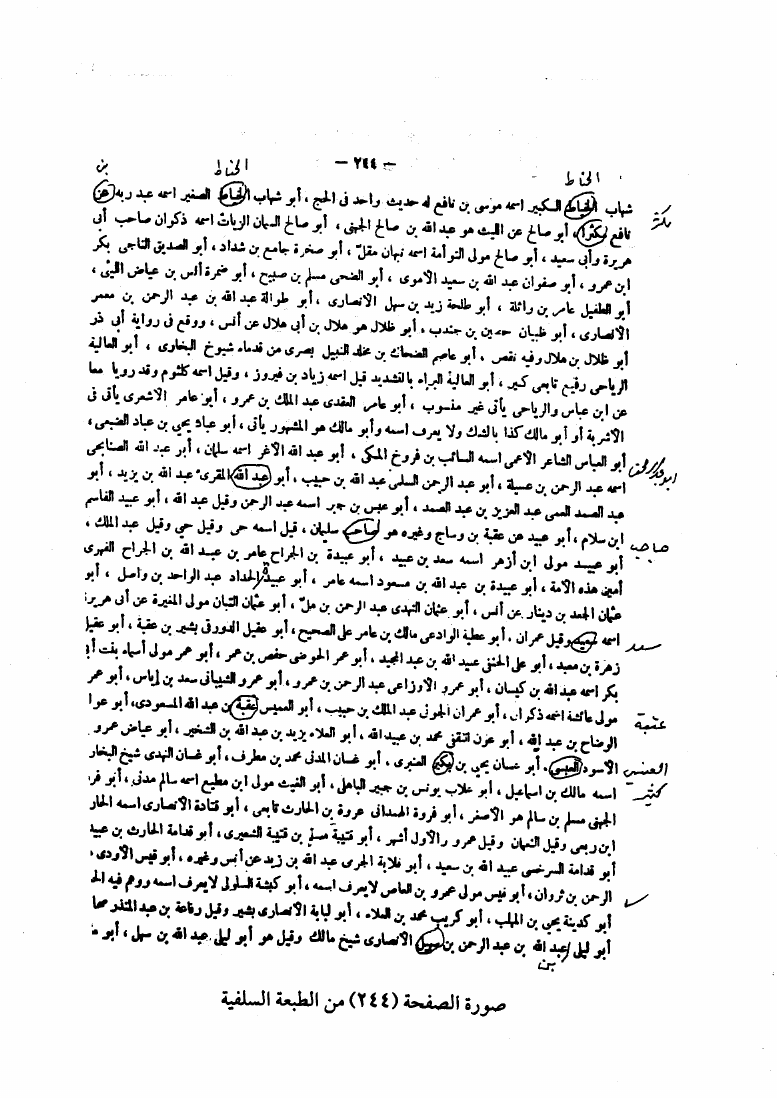 بن الحناط — ٢٤٤ — الحناط
شهاب الخياط الكبير اسمه موسى بن نافع له حديث واحد فى الحج ، أبو شهاب الخياط الصغير اسمه عبد ربه عن
مكثر
نافع مكثرا ، أبو صالح عن الليث هو عبد الله بن صالح الجهنى ، أبو صالح السمان الزيات اسمه ذكوان صاحب أبى
هريرة وأبى سعيد ، أبو صالح مولى التوأمة اسمه نبهان مقل ، أبو صخرة جامع بن شداد ، أبو الصديق الناجى بكر
ابن عمرو ، أبو صفوان عبد الله بن سعيد الأموى ، أبو الضحى مسلم بن صبيح ، أبو ضمرة أنس بن عياض الليثى ،
أبو الطفيل عامر بن واثلة ، أبو طلحة زيد بن سهل الانصارى ، أبو طوالة عبد الله بن عبد الرحمن بن معمر
الانصارى ، أبو ظبيان حصين بن جندب ، أبو ظلال هو هلال بن أبى هلال عن أنس ، ووقع فى رواية أبى ذر
أبو ظلال بن هلال وفيه نقص . أبو عاصم الضحاك بن مخلد النبيل بصرى من قدماء شيوخ البخارى ، أبو العالية
الرياحى رفيع تابعى كبير ، أبو العالية البراء بالتشديد قيل اسمه زياد بن فيروز ، وقيل اسمه كلثوم وقد رويا معا
عن ابن عباس والرياحى يأتى غير منسوب ، أبو عامر العقدى عبد الملك بن عمرو ، أبو عامر الاشعرى يأتى فى
الاشربة أو أبو مالك كذا بالشك ولا يعرف اسمه وأبو مالك هو المشهور يأتى ، أبو عباد يحيى بن عباد الضبعى ،
أبو العباس الشاعر الاعمى اسمه السائب بن فروخ المكى . أبو عبد الله الاغر اسمه سلمان ، أبو عبد الله الصنابحى
اسمه عبد الرحمن بن عسيلة ، أبو عبد الرحمن السلمى عبد الله بن حبيب ، أبو عبد الله المقرئ عبد الله بن يزيد ، أبو
عبد الصمد العمى عبد العزيز بن عبد الصمد ، أبو عبس بن جبر اسمه عبد الرحمن وقيل عبد الله ، أبو عبيد القاسم
ابن سلام ، أبو عبيد عن عقبة بن وساج وغيره هو لصاحب سليمان ، قيل اسمه حى وقيل حيى وقيل عبد الملك ،
حاجب
أبو عبيد مولى ابن أزهر اسمه سعد بن عبيد ، أبو عبيدة بن الجراح عامر بن عبد الله بن الجراح الفهرى
أمين هذه الأمة ، أبو عبيدة بن عبد الله بن مسعود اسمه عامر ، أبو عبيدة الحداد عبد الواحد بن واصل ، أبو
عثمان الجعد بن دينار عن أنس ، أبو عثمان النهدى عبد الرحمن بن مل ، أبو عثمان التبان مولى المغيرة عن أبى هريرة
اسمه سعيد وقيل عمران . أبو عطية الوادعى مالك بن عامر على الصحيح ، أبو عقيل الدورقى بشير بن عقبة ، أبو عقيل
سعد
زهرة بن معبد ، أبو على الحنفى عبيد الله بن عبد المجيد ، أبو عمر الحوضى حفص بن عمر ، أبو عمر مولى أسماء بنت أبى
بكر اسمه عبد الله بن كيسان ، أبو عمرو الاوزاعى عبد الرحمن بن عمرو ، أبو عمرو الشيبانى سعد بن إياس ، أبو عمر
مولى عائشة اسمه ذكوان ، أبو عمران الجونى عبد الملك بن حبيب ، أبو العميس عقبة بن عبد الله المسعودى ، أبو عوا
عتبة
الوضاح بن عبد الله ، أبو عون الثقفى محمد بن عبيد الله ، أبو العلاء يزيد بن عبد الله بن الشخير ، أبو عياض عمرو
العنسى
الأسود العبسى . أبو غسان يحيى بن بكير العنبرى . أبو غسان المدنى محمد بن مطرف ، أبو غسان النهدى شيخ البخار
كثير
اسمه مالك بن اسماعيل ، أبو غلاب يونس بن جبير الباهلى ، أبو الغيث مولى ابن مطيع اسمه سالم مدنى ، أبو فر
الجهنى مسلم بن سالم هو الأصغر ، أبو فروة الهمدانى عروة بن الحارث تابعى ، أبو قتادة الانصارى اسمه الحار
ابن ربعى وقيل النعمان وقيل عمرو والاول أشهر ، أبو قتيبة مسلم بن قتيبة الشعيرى ، أبو قدامة الحارث بن عبيد
أبو قدامة السرخسى عبيد الله بن سعيد ، أبو قلابة الجرمى عبد الله بن زيد عن أنس وغيره ، أبو قيس الأودى ،
الرحمن بن ثروان ، أبو قيس مولى عمرو بن العاص لا يعرف اسمه ، أبو كبشة السلولى لا يعرف اسمه ووهم فيه الح
أبو كدينة يحيى بن المهلب ، أبو كريب محمد بن العلاء ، أبو لبابة الانصارى بشير وقيل رفاعة بن عبد المنذر صحا
أبو ليلى عبد الله بن عبد الرحمن بن سهل الانصارى شيخ مالك وقيل هو أبو ليلى عبد الله بن سهل ، أبو م
بن
صورة الصفحة (٢٤٤) من الطبعة السلفية